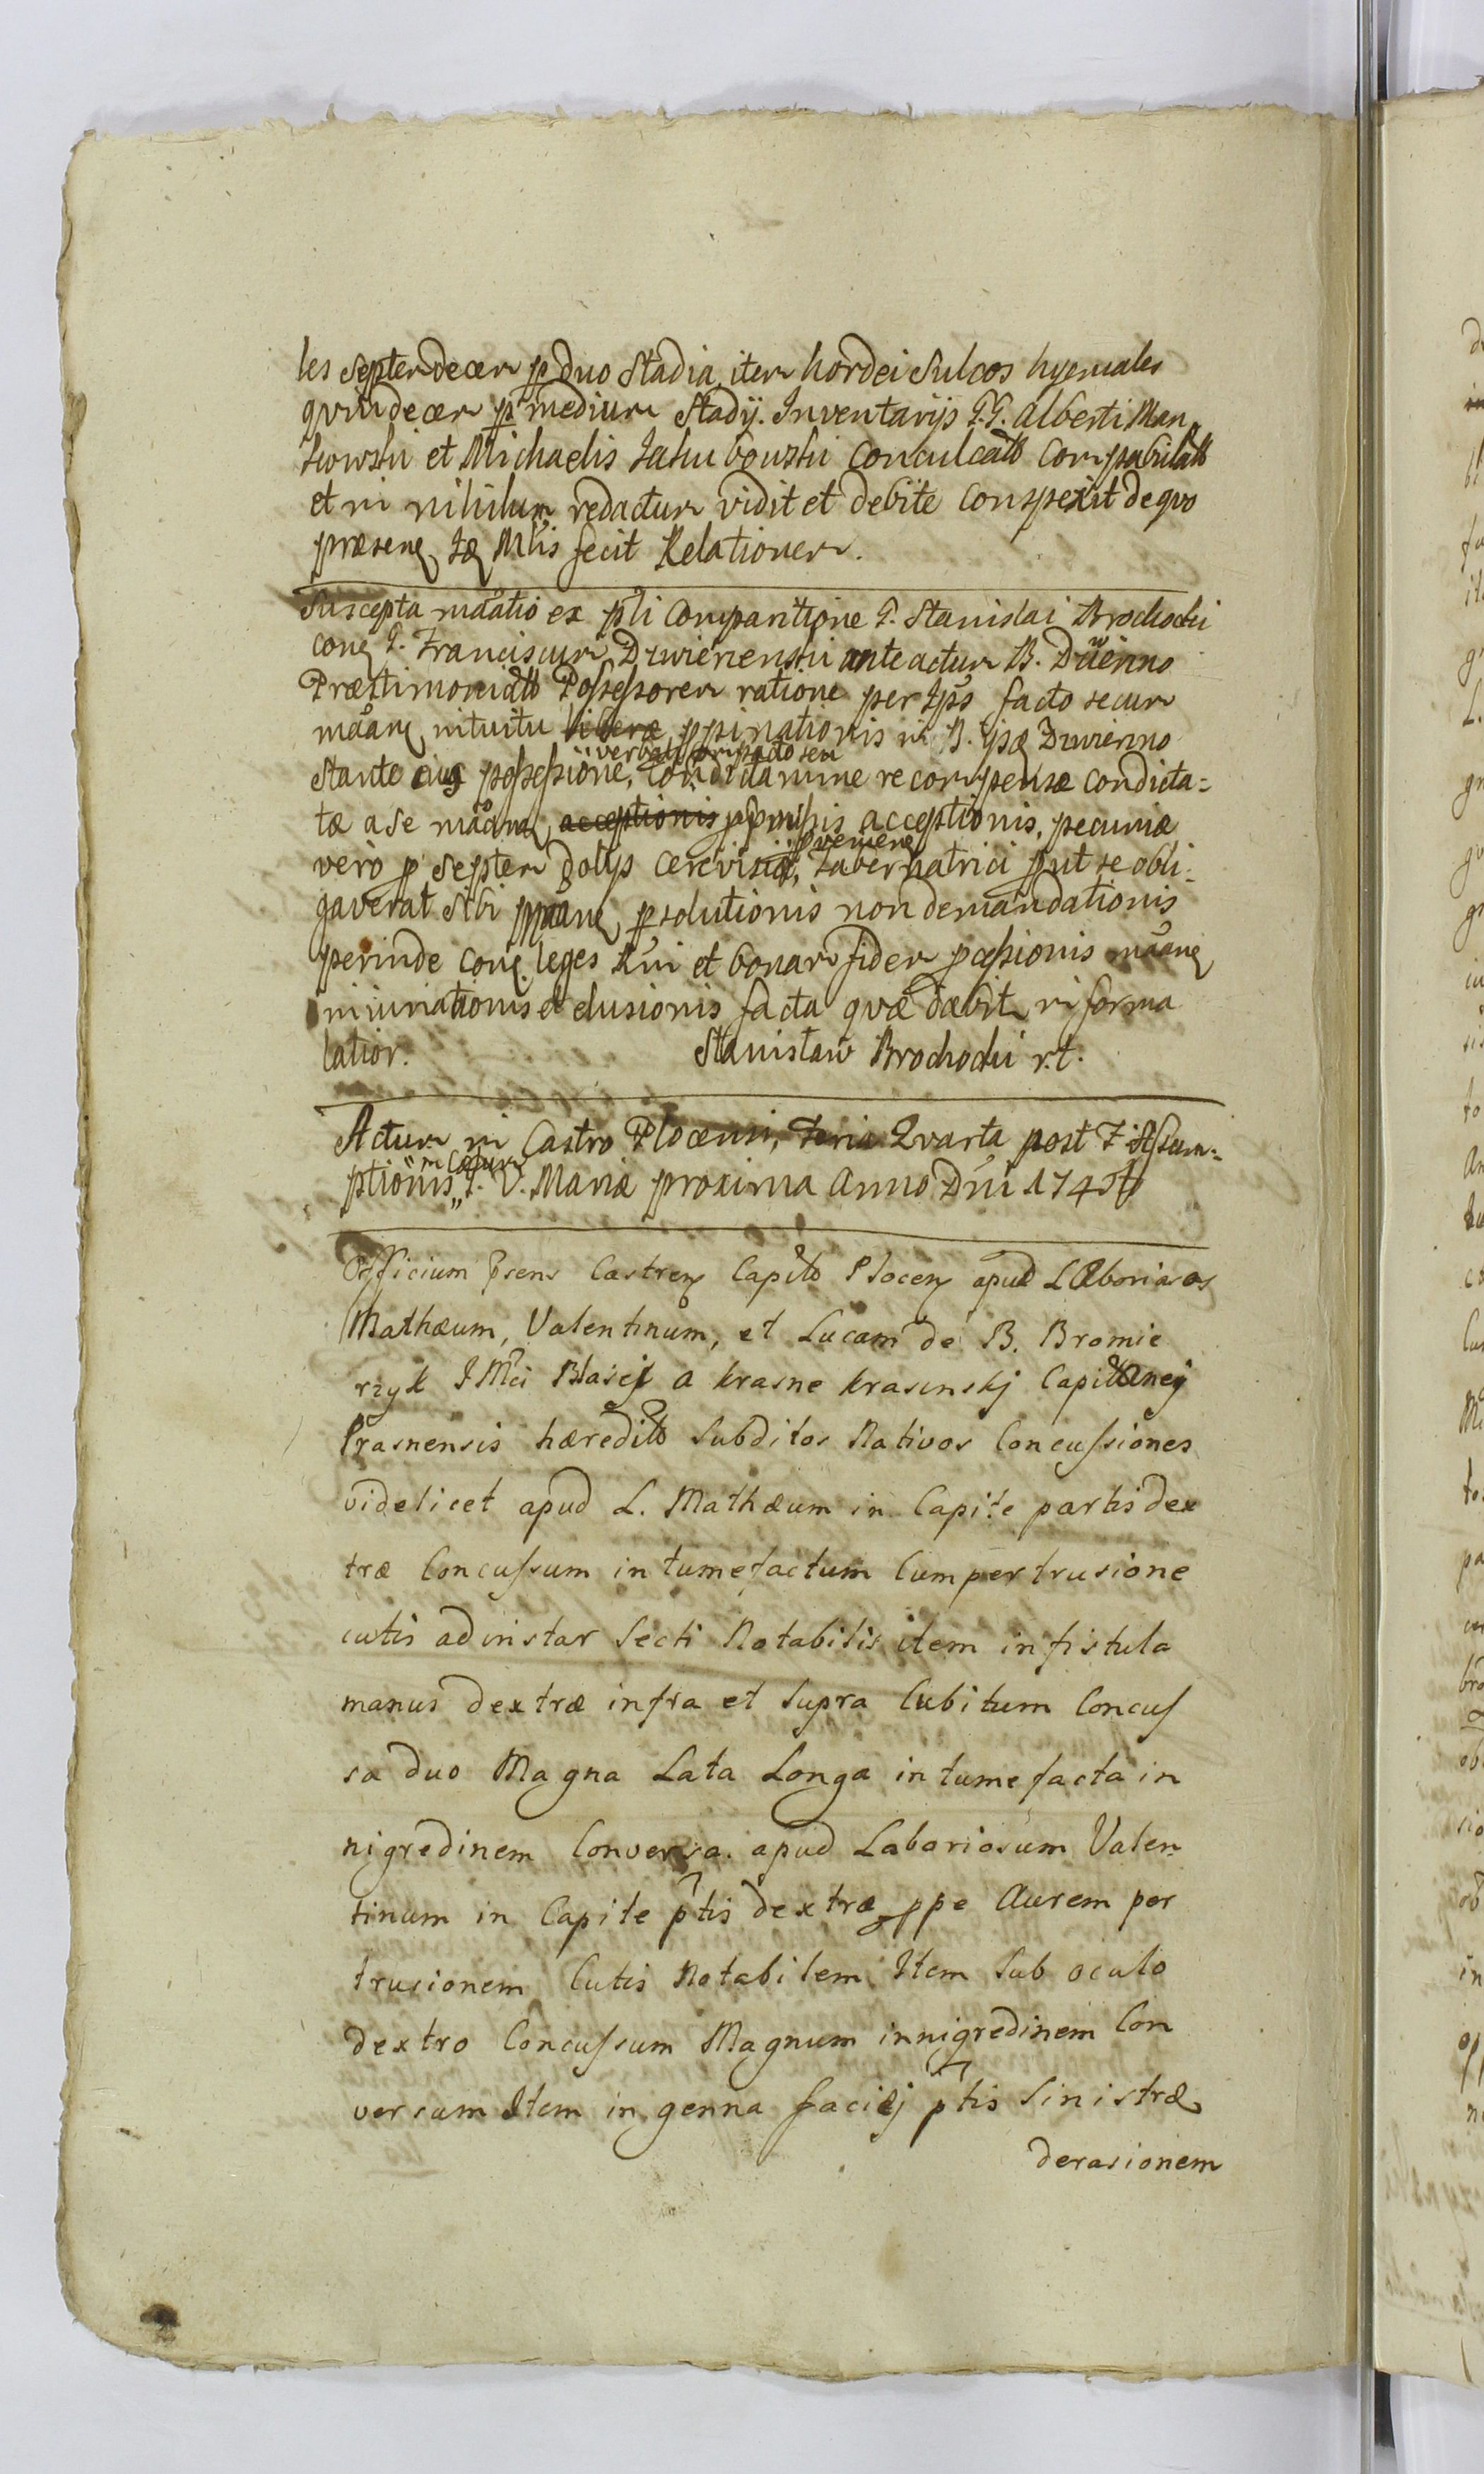 les septendecem p duo Stadia, item hordei Sulcos hyemales
quindecem p medium Stadij. Inventarijs G.G. Alberti Man„
kowski et Michaelis Jakubowski conculcat compabulat
et in nihilum redactum vidit et debite conspexit de quo
præsens Mlis fecit Relationem.
Suscepta ex pli Comparitione G. Stanislai Brochocki
G. Franciscum Drwienenski ante actum B. Drwienno
Præstimoniat Possessorem ratione per Ips facto secum
intuitu liberæ ppinationis in B. Drwienno
verbali compacto seu
Stante eius possessione, recompensæ condicta=
tæ a se acceptionis acceptionis, pecuniæ
pvenien
vero p septem dolijs cerevisiæ, Tabernatrici put se obli=
gaverat sibi psolutionis non demandationis
perinde leges Rni et bonam fidem
iniuriationis et delusionis facta quæ dabit in forma
latior. Stanisław Brochocki r.t.
Actum in Castro Plocensi, Feria Quarta post F. Assum=
ptionis in Cælum„ B. V. Mariæ proxima Anno Dni 174
Officium psens Castren Capit Plocen apud Laboriosos
Mathæum, Valentinum, et Lucam de B. Bromie
rzyk J Mci Blasij a Krasne Krasinskj Capitanej
Prasnensis hæredit Subditos Nativos Concussiones
videlicet apud L. Mathæum in Capite partis dex
træ Concussum in tumefactum Cum pertrusione
cutis ad instar Secti Notabilis item in fistula
manus dextræ infra et Supra Cubitum Concus
sa duo Magna Lata Longa in tumefacta in
nigredinem Conversa. apud Laboriosum Valen
tinum in Capite ptis dextræ ppe Aurem per
trusionem Cutis Notabilem Item Sub oculo
dextro Concussum Magnum in nigredinem Con
versum Item in genna faciej ptis Sinistræ
derasionem